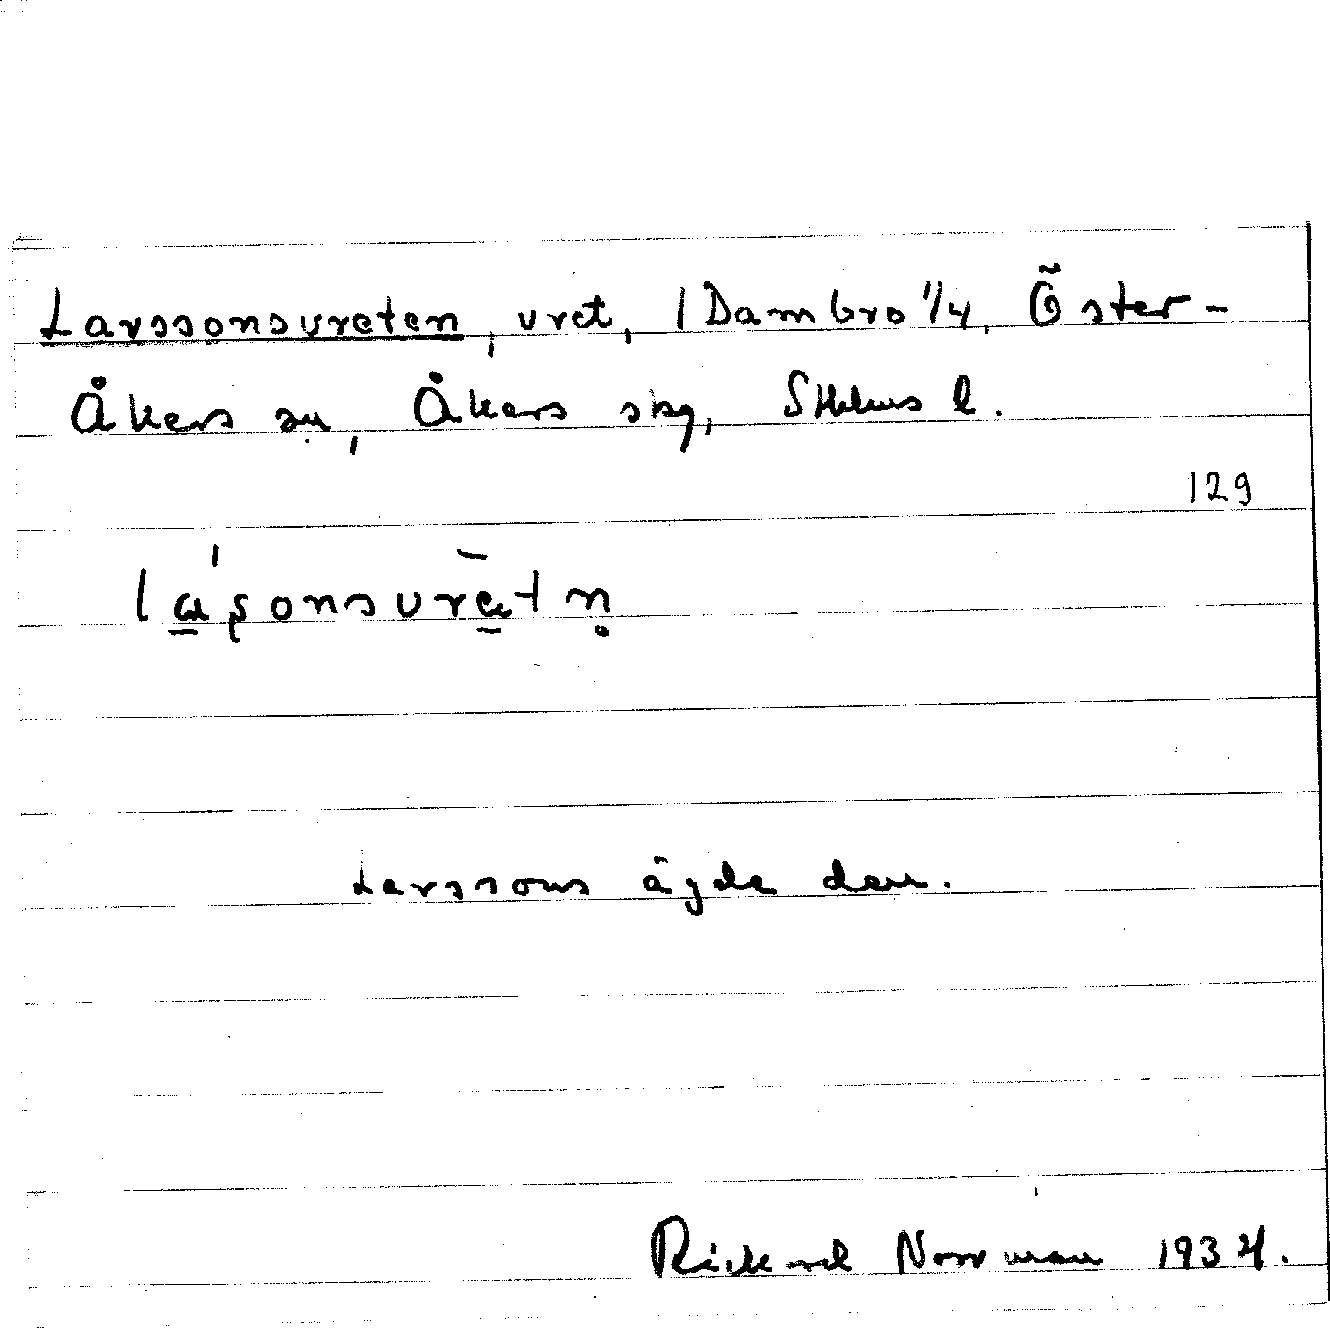 Larssonsvreten, vret, 1 Dambro 1/4, Öster-
Åkers sn, Åkers skg, Sthlms l.
129
Larssons ägde den.
Rickard Norrman 1934.